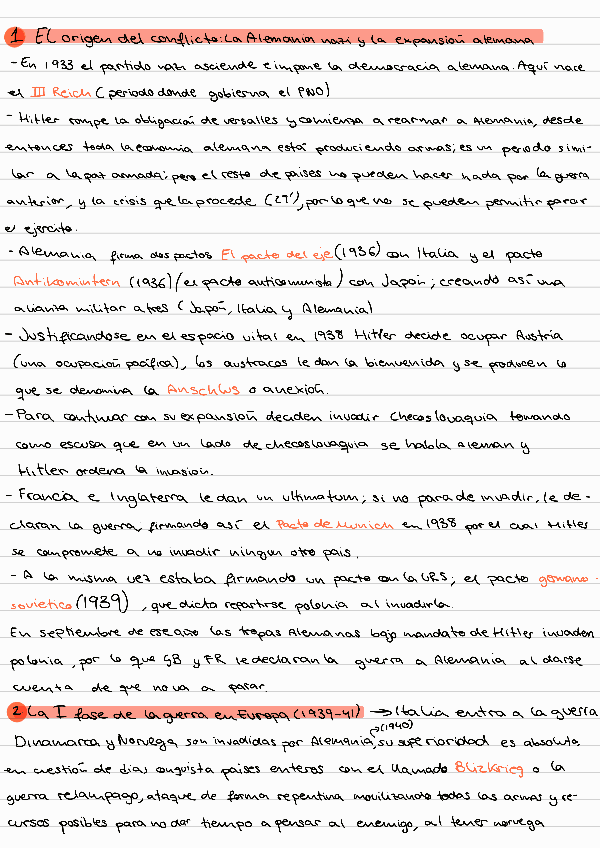 1 El origen del conflicto: La Alemania nazi y la expansión alemana
- En 1933 el partido nazi asciende e impone la democracia alemana. Aquí nace
el III Reich (periodo donde gobierna el PNO)
- Hitler rompe la obligación de versalles y comienza a rearmar a Alemania, desde
entonces toda la economia alemana está produciendo armas; es un periodo simi-
lar a la paz armada; pero el resto de paises no pueden hacer nada por la guerra
anterior, y la crisis que la procede (29'), por lo que no se pueden permitir parar
el ejercito.
- Alemania firma dos pactos El pacto del eje (1936) con Italia y el pacto
Antikomintern (1936) (es pacto anticomunista) con Japón; creando así una
alianza militar a tres (Japón, Italia y Alemania)
- Justificandose en el espacio vital en 1938 Hitler decide ocupar Austria
(una ocupación pacífica), los austracos le dan la bienvenida y se producen lo
que se denomina la Anschlus o anexión.
- Para continuar con su expansión deciden invadir Checoslovaquia tomando
como escusa que en un lado de checoslovaquia se habla aleman y
Hitler ordena la invasión.
- Francia e Inglaterra le dan un ultimatum; si no para de invadir, le de-
claran la guerra, firmando así el Pacto de Munich en 1938 por el cual Hitler
se compromete a no invadir ningun otro pais.
- A la misma vez estaba firmando un pacto con la URS; el pacto germano-
sovietico (1939), que dicta repartirse polonia al invadirla.
En septiembre de ese año las tropas Alemanas bajo mandato de Hitler invaden
polonia, por lo que GB y FR le declaran la guerra a Alemania al darse
cuenta de que no va a parar.
2 La I fase de la guerra en Europa (1939-41) → Italia entra a la guerra
(1940)
Dinamarca y Noruega son invadidas por Alemania, su superioridad es absoluta,
en cuestión de dias conquista paises enteros con el llamado Blizkrieg o la
guerra relampago, ataque de forma repentina movilizando todas las armas y re-
cursos posibles para no dar tiempo a pensar al enemigo, al tener noruega